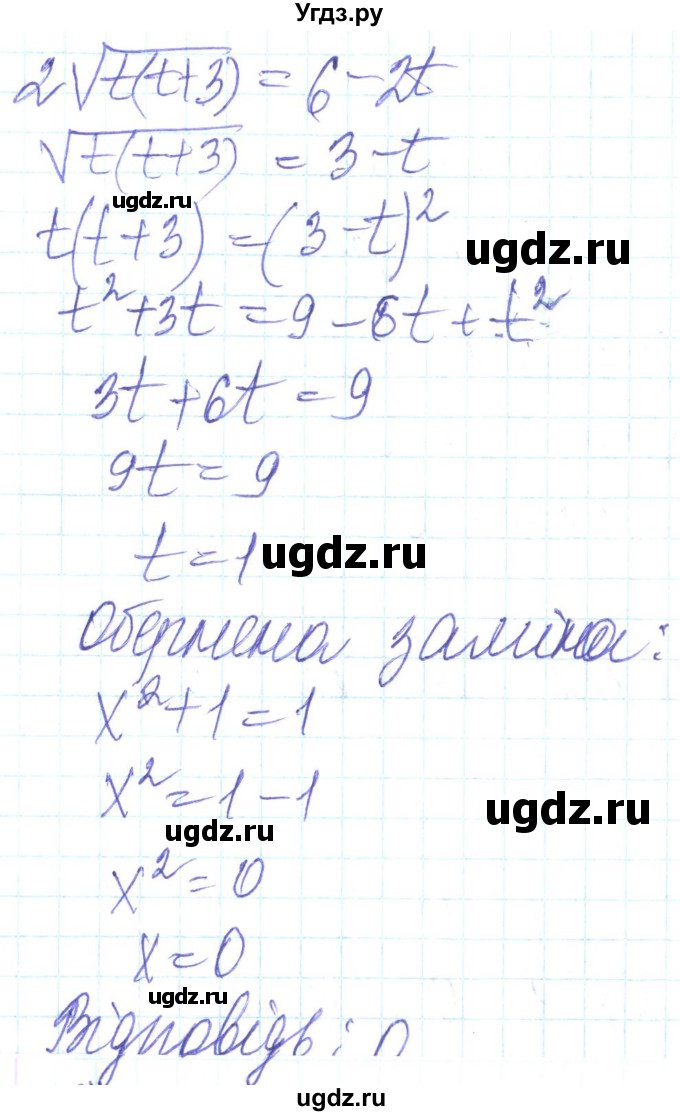 Угдз.ру
2√t(t+3) = 6 - 2t
√t(t+3) = 3 - t
ugdz.ru
t(t+3) = (3-t)²
ugdz.ru
t² + 3t = 9 - 6t + t²
3t + 6t = 9
9t = 9
t = 1
ugdz.ru
Обернена заміна:
x² + 1 = 1
x² = 1 - 1
ugdz.ru
ugdz.ru
x² = 0
x = 0
ugdz.ru
Відповідь:
ugdz.ru